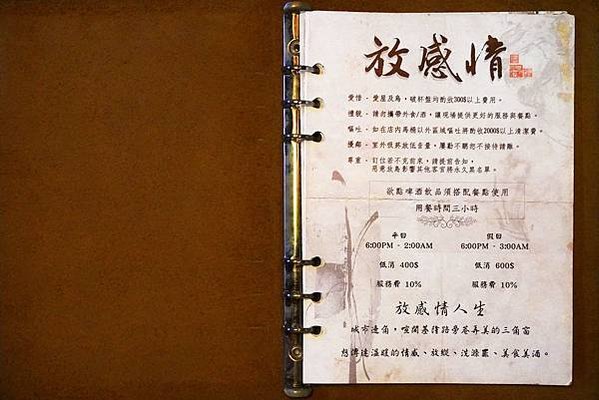 放感情
愛惜 - 愛屋及鳥,破杯盤均酌收300$以上費用。
禮貌 - 請勿攜帶外食/酒,讓現場提供更好的服務與餐點。
嘔吐 - 如在店內馬桶以外區域嘔吐將酌收2000$以上清潔費。
擾鄰 - 室外很終放低音量,屢勸不聽恕不接待請離。
尊重 - 訂位若不克前來,請提前告知,
惡意放鳥影響其他客官將永久黑名單。
欲點啤酒飲品須搭配餐點使用
用餐時間三小時
平日 假日
6:00PM - 2:00AM 6:00PM - 3:00AM
低消 400$ 低消 600$
服務費 10% 服務費 10%
放感情人生
城市邊角,喧鬧基隆路旁巷弄美的三角窗
想傳達溫暖的情感、放縱、洗滌罷、美食美酒。